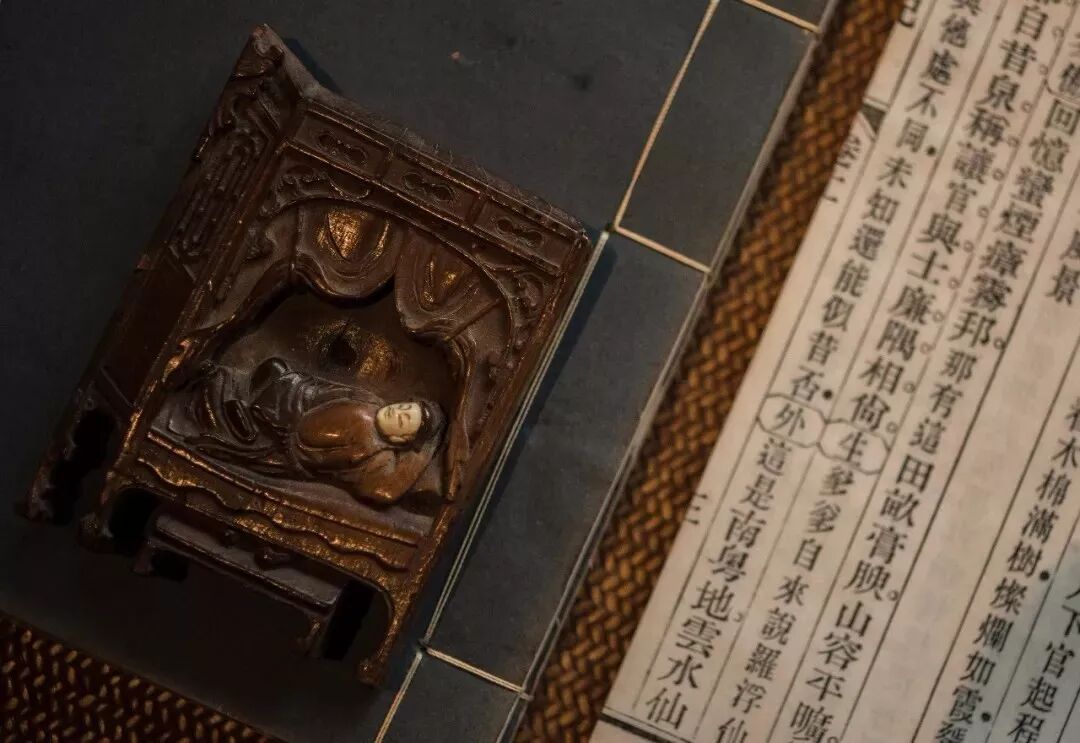 下官起程
木棉滿樹。燦爛如霞
風景
回憶蠻煙瘴霧邦。那有這田畝膏腴。山容平曠
自昔泉稱讓。官與士。廉隅相尚。生爹爹自來說羅浮仙
與他處不同。未知還能似昔否。外這是南粵地。雲水仙